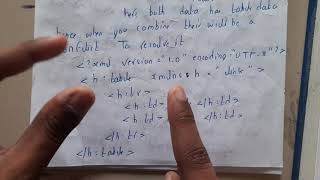 their both data has table data
hence when you combine their will be a
conflict To resolve it
<?xml version = "1.0" encoding = "UTF-8"?>
<h:table xmlns:h = "
<h:tr>
<h:td> </h:td>
<h:td> </h:td>
</h:tr>
</h:table>